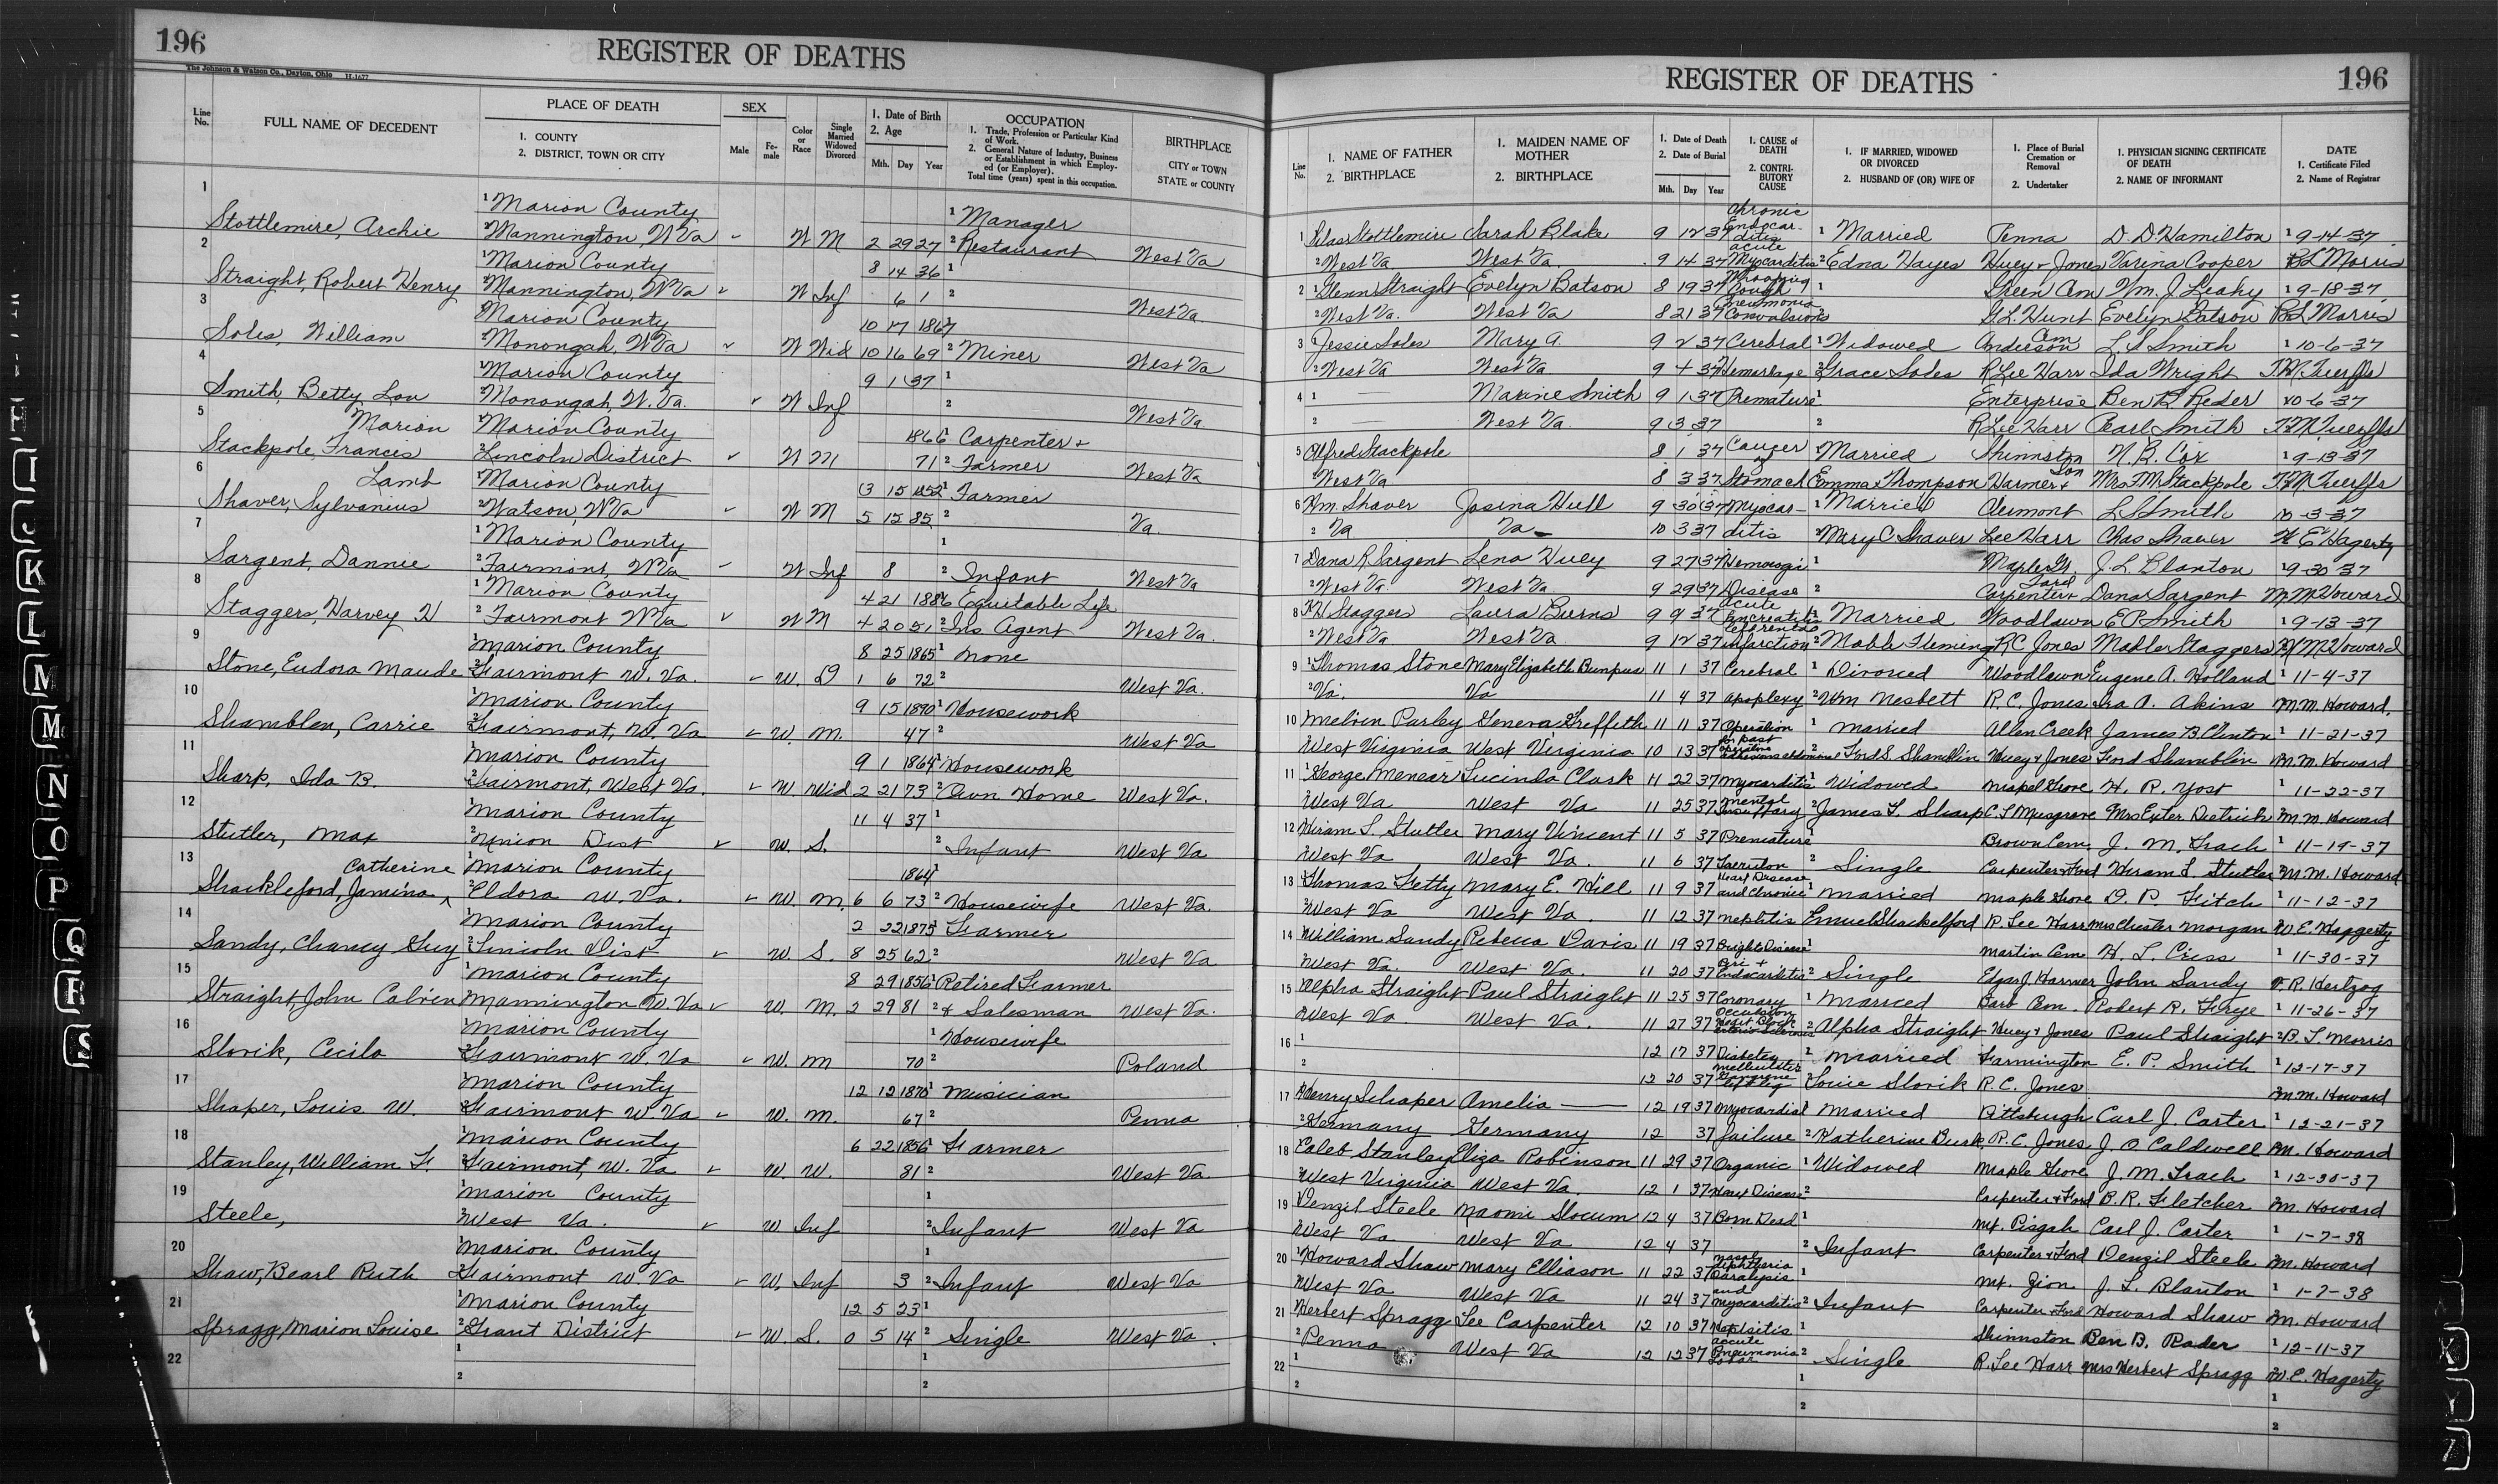 196
REGISTER OF DEATHS
The Johnson & Watson Co., Dayton, Ohio H-1677
Line No. FULL NAME OF DECEDENT PLACE OF DEATH 1. COUNTY 2. DISTRICT, TOWN OR CITY SEX Male Female Color or Race Single Married Widowed Divorced 1. Date of Birth 2. Age Mth. Day Year OCCUPATION 1. Trade, Profession or Particular Kind of Work. 2. General Nature of Industry, Business or Establishment in which Employed (or Employer). Total time (years) spent in this occupation. BIRTHPLACE CITY or TOWN STATE or COUNTY
1 1 Marion County 1 Manager
Stottlemire, Archie 2 Mannington, W Va ✓ W M 2 29 27 2 Restaurant West Va
2 1 Marion County 8 14 36 1
Straight, Robert Henry 2 Mannington, W Va ✓ W Inf 6 1 2 West Va
3 1 Marion County 10 17 1867 1
Soles, William 2 Monongah, W Va ✓ W Wid 10 16 69 2 Miner West Va
4 1 Marion County 9 1 37 1
Smith, Betty Lou 2 Monongah, W. Va. ✓ W Inf 2 West Va
5 Marion 1 Marion County 1866 1 Carpenter +
Stackpole, Francis 2 Lincoln District ✓ W M 71 2 Farmer West Va
6 Lamb 1 Marion County 3 15 1852 1 Farmer
Shaver, Sylvanius 2 Watson, W Va ✓ W M 5 15 85 2 Va.
7 1 Marion County 1
Sargent, Dannie 2 Fairmont, W Va ✓ W Inf 8 2 Infant West Va
8 1 Marion County 4 21 1886 1 Equitable Life
Staggers, Harvey H 2 Fairmont W Va ✓ W M 4 20 51 2 Ins Agent West Va.
9 1 Marion County 8 25 1865 1 None
Stone, Eudora Maude 2 Fairmont W. Va. ✓ W. D 1 6 72 2 West Va.
10 1 Marion County 9 15 1890 1 Housework
Shamblen, Carrie 2 Fairmont, W. Va ✓ W. M. 47 2 West Va
11 1 Marion County 9 1 1864 1 Housework
Sharp, Ida B. 2 Fairmont, West Va. ✓ W. Wid 2 21 73 2 Own Home West Va.
12 1 Marion County 11 4 37 1
Stutler, Max 2 Union Dist ✓ W. S. 2 Infant West Va
13 Catherine 1 Marion County 1864 1
Shackleford, Jamina 2 Eldora W. Va. ✓ W. M. 6 6 73 2 Housewife West Va.
14 1 Marion County 2 22 1875 1 Farmer
Sandy, Chancy Guy 2 Lincoln Dist ✓ W. S. 8 25 62 2 West Va
15 1 Marion County 8 29 1856 1 Retired Farmer
Straight, John Calvin 2 Mannington W. Va ✓ W. M. 2 29 81 2 & Salesman West Va.
16 1 Marion County 1 Housewife
Slovik, Cecila 2 Fairmont W. Va ✓ W. M 70 2 Poland
17 1 Marion County 12 12 1870 1 Musician
Shaper, Louis W. 2 Fairmont W. Va ✓ W. M. 67 2 Penna
18 1 Marion County 6 22 1856 1 Farmer
Stanley, William F 2 Fairmont, W. Va ✓ W. W. 81 2 West Va.
19 1 Marion County 1
Steele, 2 West Va. ✓ W Inf 2 Infant West Va
20 1 Marion County 1
Shaw, Bearl Ruth 2 Fairmont W. Va ✓ W. Inf 3 2 Infant West Va
21 1 Marion County 12 5 23 1
Spragg, Marion Louise 2 Grant District ✓ W. S. 0 5 14 2 Single West Va.
22 1 1
2 2
REGISTER OF DEATHS
196
Line No. 1. NAME OF FATHER 2. BIRTHPLACE 1. MAIDEN NAME OF MOTHER 2. BIRTHPLACE 1. Date of Death 2. Date of Burial Mth. Day Year 1. CAUSE of DEATH 2. CONTRIBUTORY CAUSE 1. IF MARRIED, WIDOWED OR DIVORCED 2. HUSBAND OF (OR) WIFE OF 1. Place of Burial Cremation or Removal 2. Undertaker 1. PHYSICIAN SIGNING CERTIFICATE OF DEATH 2. NAME OF INFORMANT DATE 1. Certificate Filed 2. Name of Registrar
1 Silas Stottlemire Sarah Blake 9 12 37 Chronic Endocarditis 1 Married Penna D. D Hamilton 1 9-14-37
2 West Va West Va 9 14 37 acute Myocarditis 2 Edna Hayes Huey + Jones Varina Cooper B L Morris
2 1 Glenn Straight Evelyn Batson 8 19 37 Whooping Cough 1 Green Cem Wm. J. Leahy 1 9-18-37
2 West Va. West Va 8 21 37 Pneumonia Convulsions 2 G. L. Hunt Evelyn Batson B L Morris
3 Jessie Soles Mary A. 9 2 37 Cerebral 1 Widowed Anderson Cem L. S Smith 1 10-6-37
2 West Va West Va 9 4 37 Hemorhage 2 Grace Soles R Lee Harr Ida Wright
4 1 — Maxine Smith 9 1 37 Premature 1 Enterprise Ben R. Reder 10-6-37
2 — West Va. 9 3 37 2 R Lee Harr Pearl Smith
5 Alfred Stackpole 8 1 37 Cancer of 1 Married Shinnston N. B. Cox 1 9-13-37
2 West Va 8 3 37 Stomach Emma Thompson Harmer + Son Mrs M Stackpole
6 Wm. Shaver Josina Hull 9 30 37 Myocar- 1 Married Clermont L. S Smith 10-3-37
2 Va Va 10 3 37 ditis 2 Mary C Shaver Lee Harr Chas Shaver W E Hagerty
7 Dana R. Sargent Lena Huey 9 27 37 1 Maple Gr. J. L. Blanton 1 9-30-37
2 West Va. West Va 9 29 37 Disease 2 Carpenter + Ford Dana Sargent M. M. Howard
8 Staggers Laura Burns 9 9 37 acute 1 Married Woodlawn E P Smith 1 9-13-37
2 West Va West Va 9 12 37 infarction 2 Mable Fleming R C Jones Mable Staggers M M Howard
9 1 Thomas Stone Mary Elizabeth Bumpus 11 1 37 Cerebral 1 Divorced Woodlawn Eugene A. Holland 1 11-4-37
2 Va. Va 11 4 37 apoplexy 2 Wm Nesbett R. C. Jones Ira A. Akins M. M. Howard.
10 Melvin Purley Geneva Greffeth 11 11 37 Operation 1 Married Allen Creek James B Clinton 1 11-21-37
West Virginia West Virginia 10 13 37 for past operative adhesions abdominal 2 Ford S. Shamblin Huey & Jones Ford Shamblin M. M. Howard
11 1 George Menear Lucinda Clark 11 22 37 Myocarditis 1 Widowed Mapel Grove H. R. Yost 1 11-22-37
West Va West Va 11 25 37 2 James F. Sharp C. L Musgrove Mrs Exter Dietrick M. M. Howard
12 Hiram L. Stutler Mary Vincent 11 5 37 Premature 1 Brown Cem. J. M. Trach 1 11-19-37
West Va West Va. 11 6 37 2 Single Carpenter & Ford Hiram L. Stutler M. M. Howard
13 Thomas Fetty Mary E. Hill 11 9 37 Heart Disease and Chronic 1 Married Maple Grove D. P. Fitch 1 11-12-37
2 West Va West Va. 11 12 37 nephitis Emuel Shackelford R. Lee Harr Mrs Chester Morgan W. E. Haggerty
14 William Sandy Rebecca Davis 11 19 37 Brights Disease 1 Martin Cem H. L. Criss 1 11-30-37
West Va. West Va. 11 20 37 Peri + Endocarditis 2 Single Edgar J. Harmer John Sandy F. R. Hertzog
15 Alpha Straight Paul Straight 11 25 37 Coronary 1 Married Barb Cem. Robert R. Frye 1 11-26-37
West Va West Va. 11 27 37 Occulusion Heart Block 2 Alpha Straight Huey & Jones Paul Straight 2 B. L. Morris
16 1 12 17 37 Diabetes 1 Married Farmington E. P. Smith 1 12-17-37
2 12 20 37 Gangrene 2 Louie Slovik R. C. Jones M. M. Howard
17 Henry Schaper Amelia — 12 19 37 Myocardial 1 Married Pittsburgh Carl J. Carter 1 12-21-37
2 Germany Germany 12 37 failure 2 Katherine Busk R. C. Jones J. O. Caldwell M. Howard
18 Caleb Stanley Eliza Robinson 11 29 37 Organic 1 Widowed Maple Grove J. M. Trach 1 12-30-37
2 West Virginia West Va. 12 1 37 Heart Disease 2 Carpenter & Ford B. R. Fletcher M. Howard
19 Denzil Steele Naomi Slocum 12 4 37 Born Dead 1 Mt. Pisgah Carl J. Carter 1 1-7-38
West Va West Va 12 4 37 2 Infant Carpenter & Ford Denzil Steele M. Howard
20 1 Howard Shaw Mary Elliason 11 22 37 nasal diphtheria Paralysis 1 Mt. Zion J. L. Blanton 1 1-7-38
West Va West Va 11 24 37 and Myocarditis 2 Infant Carpenter & Ford Howard Shaw M. Howard
21 Herbert Spragg Lee Carpenter 12 10 37 1 Shinnston Ben B. Rader 1 12-11-37
2 Penna West Va 12 12 37 accute Pneumonia Lobar 2 Single R. Lee Harr Mrs Herbert Spragg W. E. Hagerty
22 1 1 1
2 2 2
I J K L M N O P Q R S
X Y Z